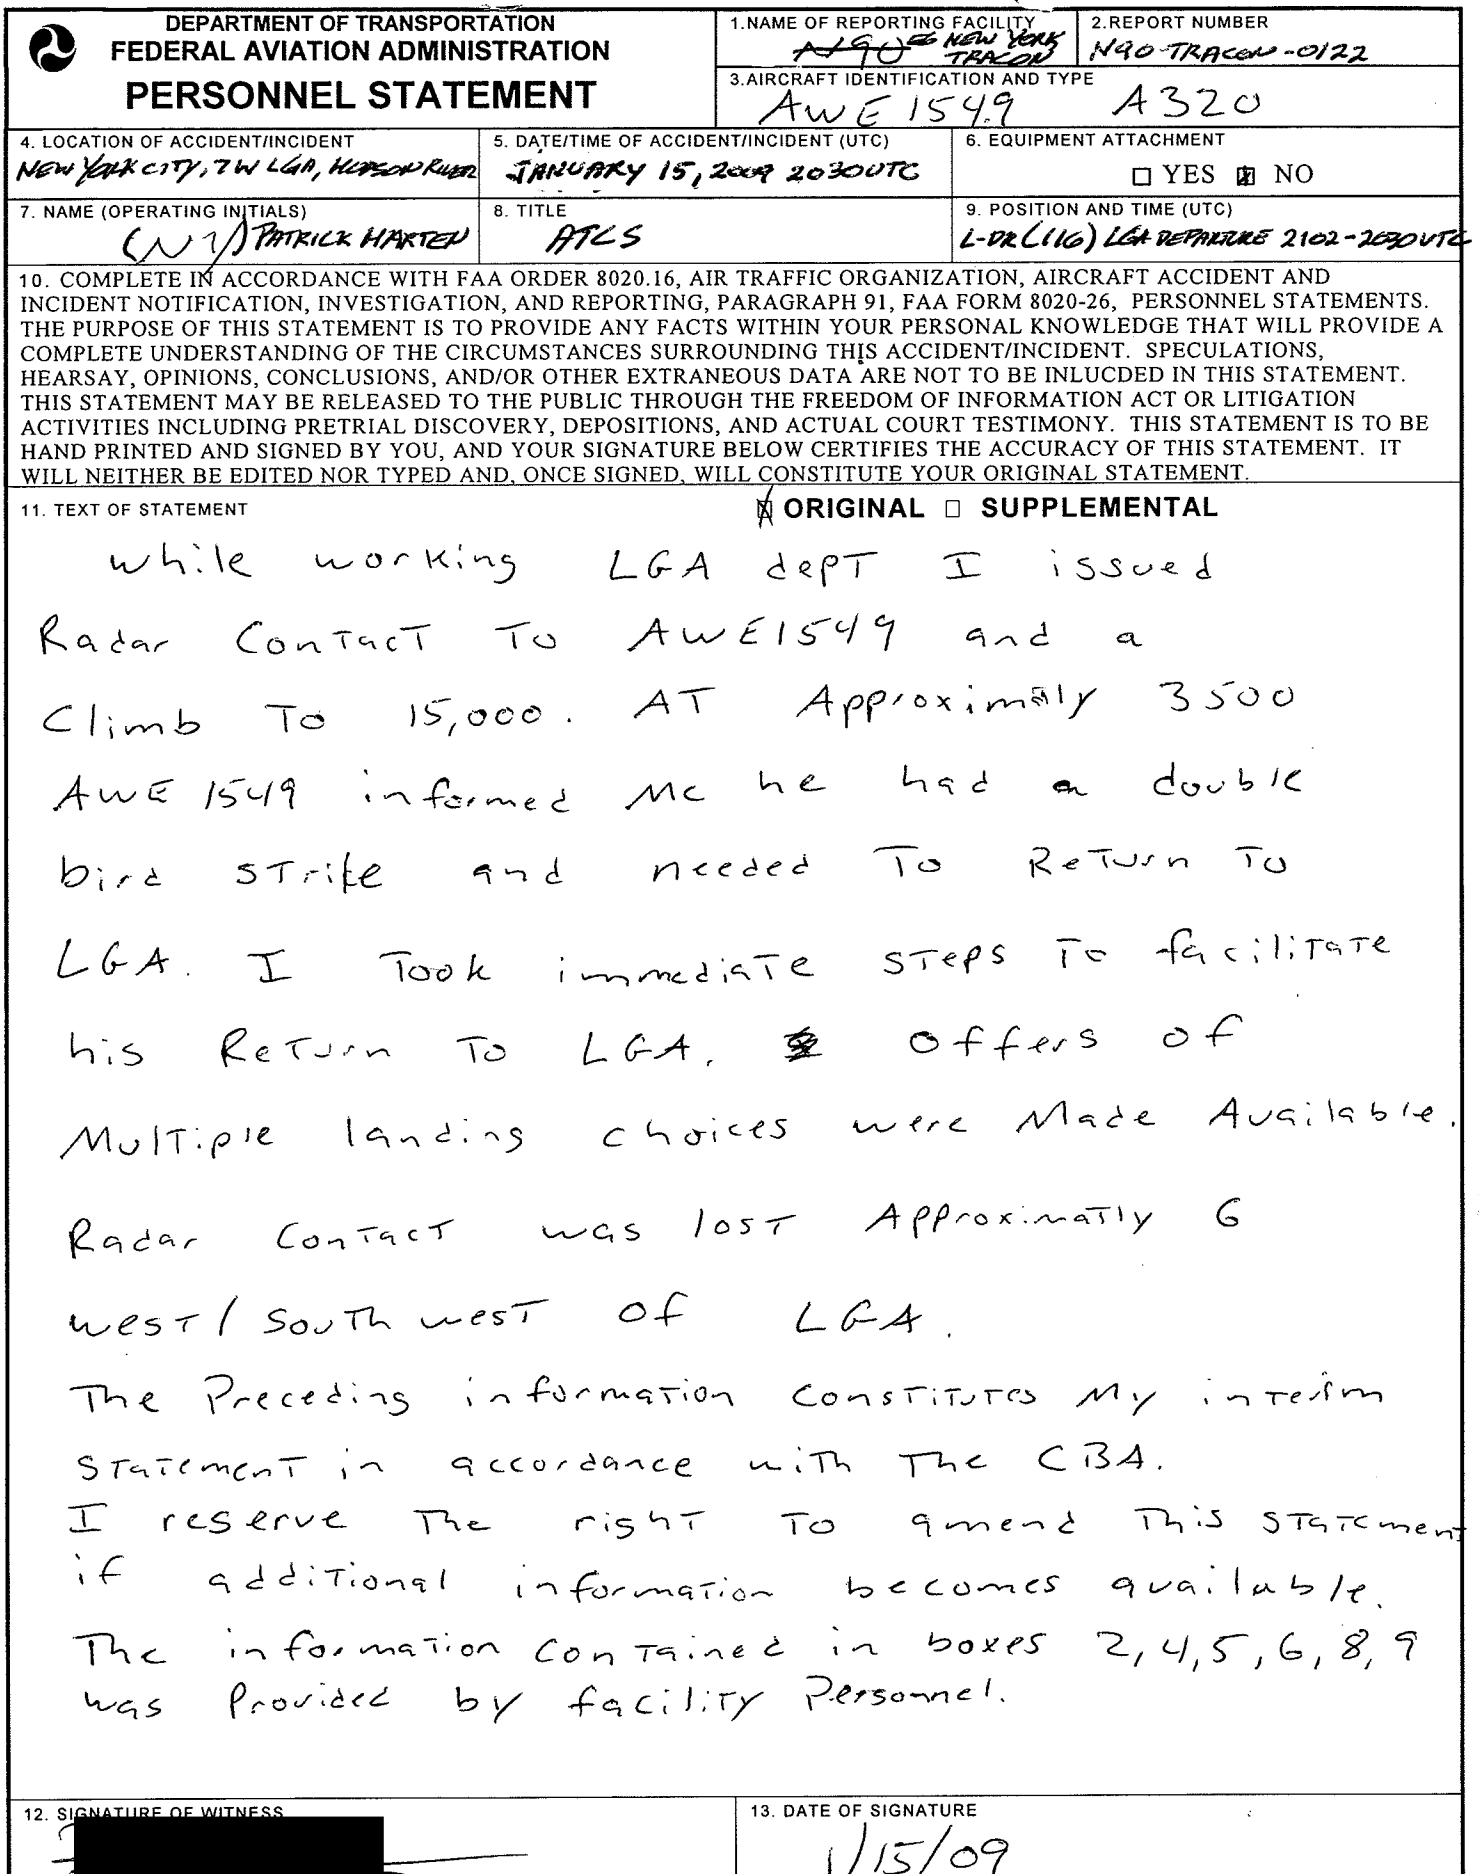 DEPARTMENT OF TRANSPORTATION
FEDERAL AVIATION ADMINISTRATION
PERSONNEL STATEMENT
1.NAME OF REPORTING FACILITY
N90 NEW YORK
TRACON
2.REPORT NUMBER
N90-TRACON-0122
3.AIRCRAFT IDENTIFICATION AND TYPE
AWE 1549 A320
4. LOCATION OF ACCIDENT/INCIDENT
NEW YORK CITY, 7W LGA, HUDSON RIVER
5. DATE/TIME OF ACCIDENT/INCIDENT (UTC)
JANUARY 15, 2009 2030UTC
6. EQUIPMENT ATTACHMENT
☐ YES ☒ NO
7. NAME (OPERATING INITIALS)
PATRICK HARTEN
8. TITLE
ATCS
9. POSITION AND TIME (UTC)
L-DR (116) LGA DEPARTURE 2102-2030UTC
10. COMPLETE IN ACCORDANCE WITH FAA ORDER 8020.16, AIR TRAFFIC ORGANIZATION, AIRCRAFT ACCIDENT AND
INCIDENT NOTIFICATION, INVESTIGATION, AND REPORTING, PARAGRAPH 91, FAA FORM 8020-26, PERSONNEL STATEMENTS.
THE PURPOSE OF THIS STATEMENT IS TO PROVIDE ANY FACTS WITHIN YOUR PERSONAL KNOWLEDGE THAT WILL PROVIDE A
COMPLETE UNDERSTANDING OF THE CIRCUMSTANCES SURROUNDING THIS ACCIDENT/INCIDENT. SPECULATIONS,
HEARSAY, OPINIONS, CONCLUSIONS, AND/OR OTHER EXTRANEOUS DATA ARE NOT TO BE INLUCDED IN THIS STATEMENT.
THIS STATEMENT MAY BE RELEASED TO THE PUBLIC THROUGH THE FREEDOM OF INFORMATION ACT OR LITIGATION
ACTIVITIES INCLUDING PRETRIAL DISCOVERY, DEPOSITIONS, AND ACTUAL COURT TESTIMONY. THIS STATEMENT IS TO BE
HAND PRINTED AND SIGNED BY YOU, AND YOUR SIGNATURE BELOW CERTIFIES THE ACCURACY OF THIS STATEMENT. IT
WILL NEITHER BE EDITED NOR TYPED AND, ONCE SIGNED, WILL CONSTITUTE YOUR ORIGINAL STATEMENT.
11. TEXT OF STATEMENT
☒ ORIGINAL ☐ SUPPLEMENTAL
While working LGA dept I issued
Radar Contact To AWE1549 and a
Climb To 15,000. AT Approximaly 3500
AWE 1549 informed Me he had a double
bird strike and needed To Return To
LGA. I Took immediate steps To facilitate
his Return To LGA. Offers of
Multiple landing choices were Made Available.
Radar Contact was lost Approximatly 6
west/southwest of LGA.
The Preceding information Constitutes My interim
Statement in accordance with The CBA.
I reserve The right To amend This Statement
if additional information becomes available.
The information Contained in boxes 2,4,5,6,8,9
was Provided by facility Personnel.
12. SIGNATURE OF WITNESS
13. DATE OF SIGNATURE
1/15/09